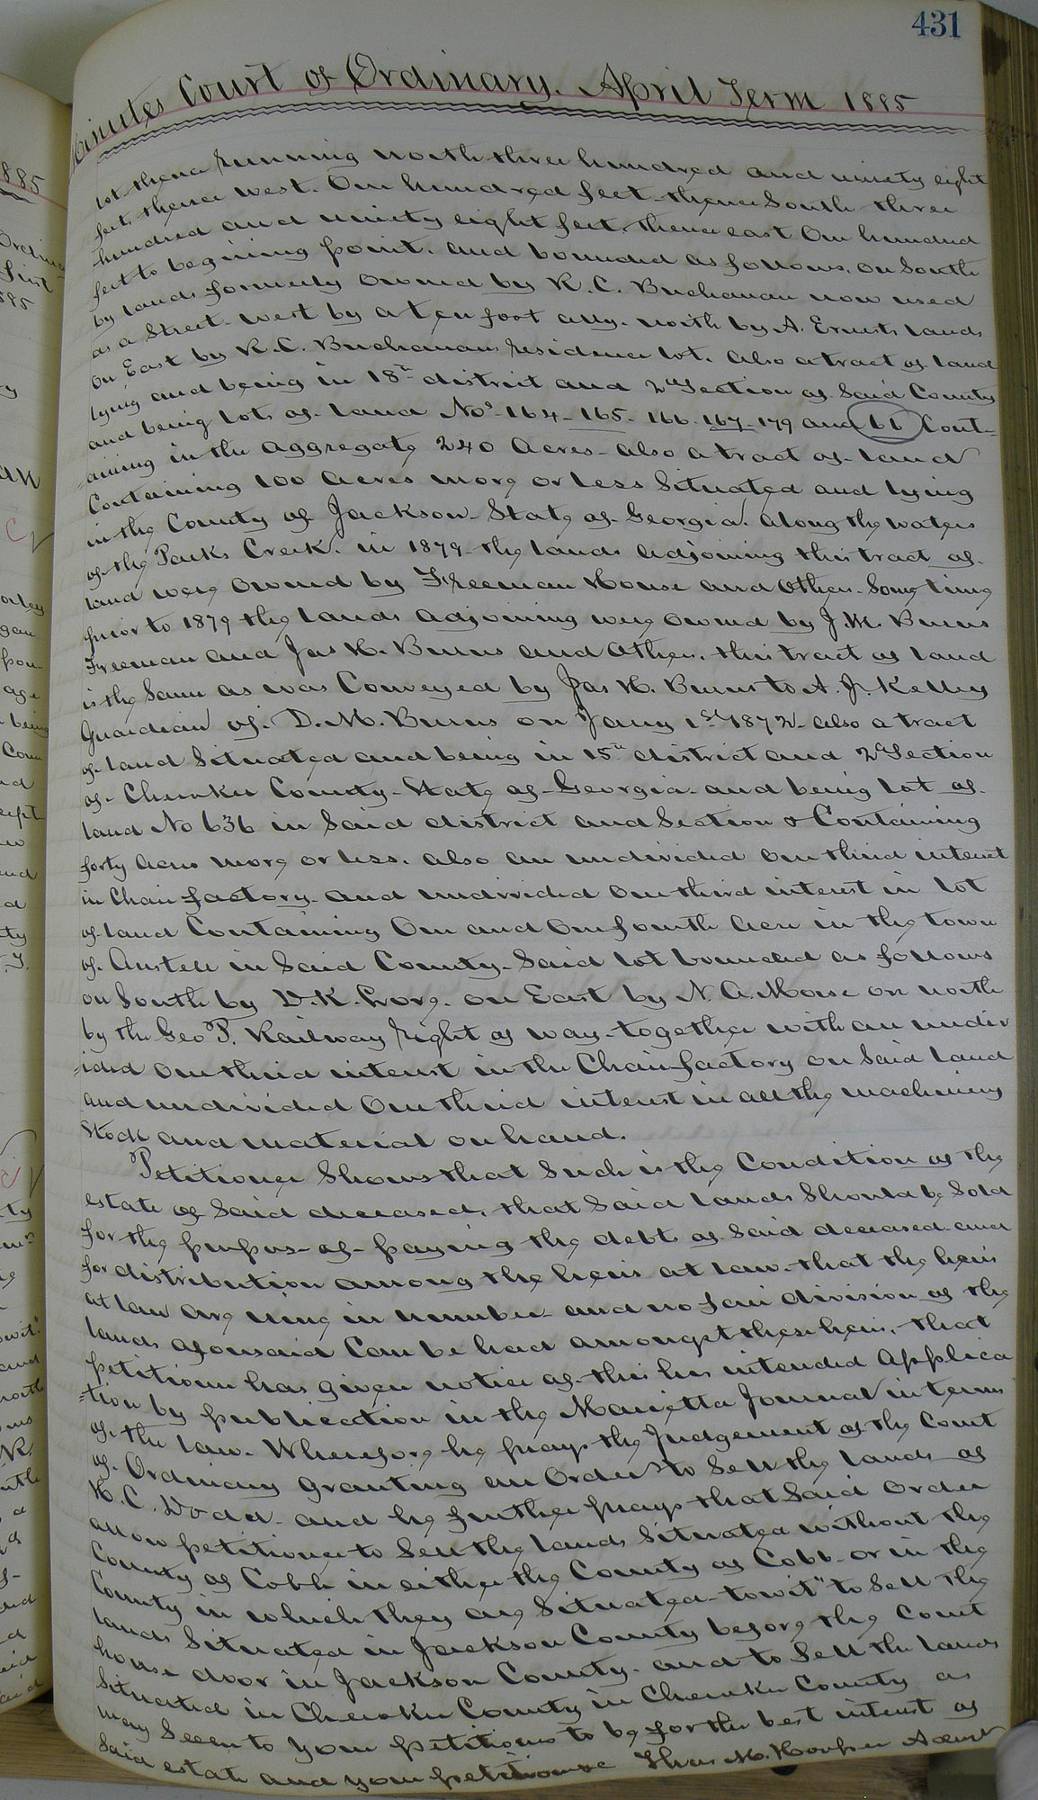 431
Minutes Court of Ordinary. April Term 1885
lot thence running north three hundred and ninety eight
feet, thence west. One hundred feet thence South three
hundred and ninety eight feet, thence east One hundred
feet to begining point. and bounded as follows, on South
by lands formerly owned by R. C. Buchanan now used
as a Street. west by a ten foot ally. north by A. Ernests lands
on East by R. C. Buchanans residence lot. Also a tract of land
lying and being in 18th district and 2d Section of Said County
and being lots of land Nos 164 - 165 - 166. 167 - 179 and 66 Cont-
aining in the aggregate 240 Acres - also a tract of land
Containing 100 Acres more or less Situated and lying
in the County of Jackson State of Georgia. along the waters
of the Parks Creek. in 1879 the lands adjoining this tract of
land were owned by Freeman House and Others. Some time
prior to 1879 the lands adjoining were owned by J. M. Burns
Freeman and Jas R. Burns and Others. this tract of land
is the Same as was Conveyed by Jas R. Burns to A. J. Kelley
Guardian of D. M. Burns on Jany 1st 1872 - also a tract
of land Situated and being in 15th district and 2d Section
of Cherokee County - State of Georgia - and being lot of
land No 636 in Said district and Section & Containing
forty Acres more or less. also an undivided one third interest
in Chair factory - and undivided one third interest in lot
of land Containing One and One fourth Acre in the town
of Austell in Said County - Said lot bounded as follows
on South by on East by N. A. Morse on north
by the Geo P. Railway right of way - together with an undiv
=ided one third interest in the Chair factory on Said land
and undivided One third interest in all the machinery
Stock and material on hand.
Petitioner Shows that Such is the Condition of the
estate of Said deceased, that Said lands Should be Sold
for the purpus - of - paying the debts of Said deceased and
for distribution among the heirs at law - that the heirs
at law are nine in number and no fair division of the
lands aforesaid Can be had amongst these heirs, that
petitioner has given notice of this his intended Applica
=tion by publication in the Marietta Journal in terms
of the law. Wherefore he prays the Judgement of the Court
of Ordinary granting an Order to Sell the lands of
R. C. Dodd - and he further prays that Said order
allow petitioner to Sell the lands Situated without the
County of Cobb in either the County of Cobb - or in the
County in which they are Situated - towit" to Sell the
lands Situated in Jackson County before the Court
house door in Jackson County - and to Sell the lands
Situated in Cherokee County in Cherokee County as
may Seem to your petitioner to be for the best interest of
Said estate and your petitioner Thos. M. Hooper Admr